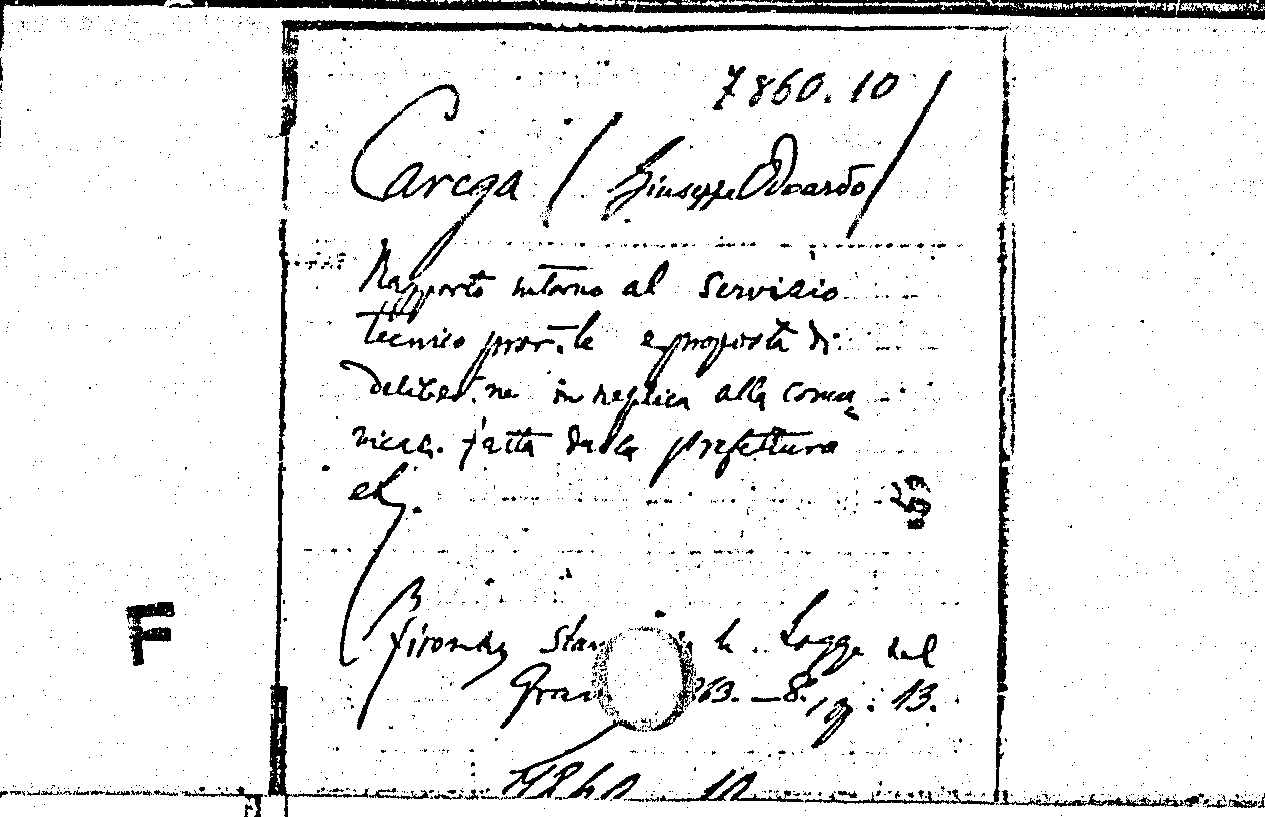 7860.10
Carega / Giuseppe Odoardo /
Rapporto intorno al Servizio
tecnico prov.le e proposta di
deliber.ne in replica alla comu
nicaz. fatta dalla prefettura
F
Firenze Stam le Logge del
Gran 863. – 8.° pg. 13.
7860 10